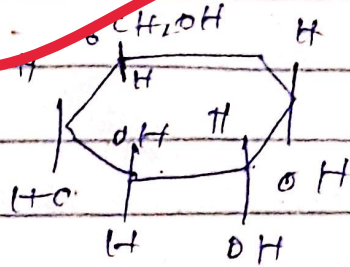 6 CH2OH H
H H
OH H
HO OH
H OH